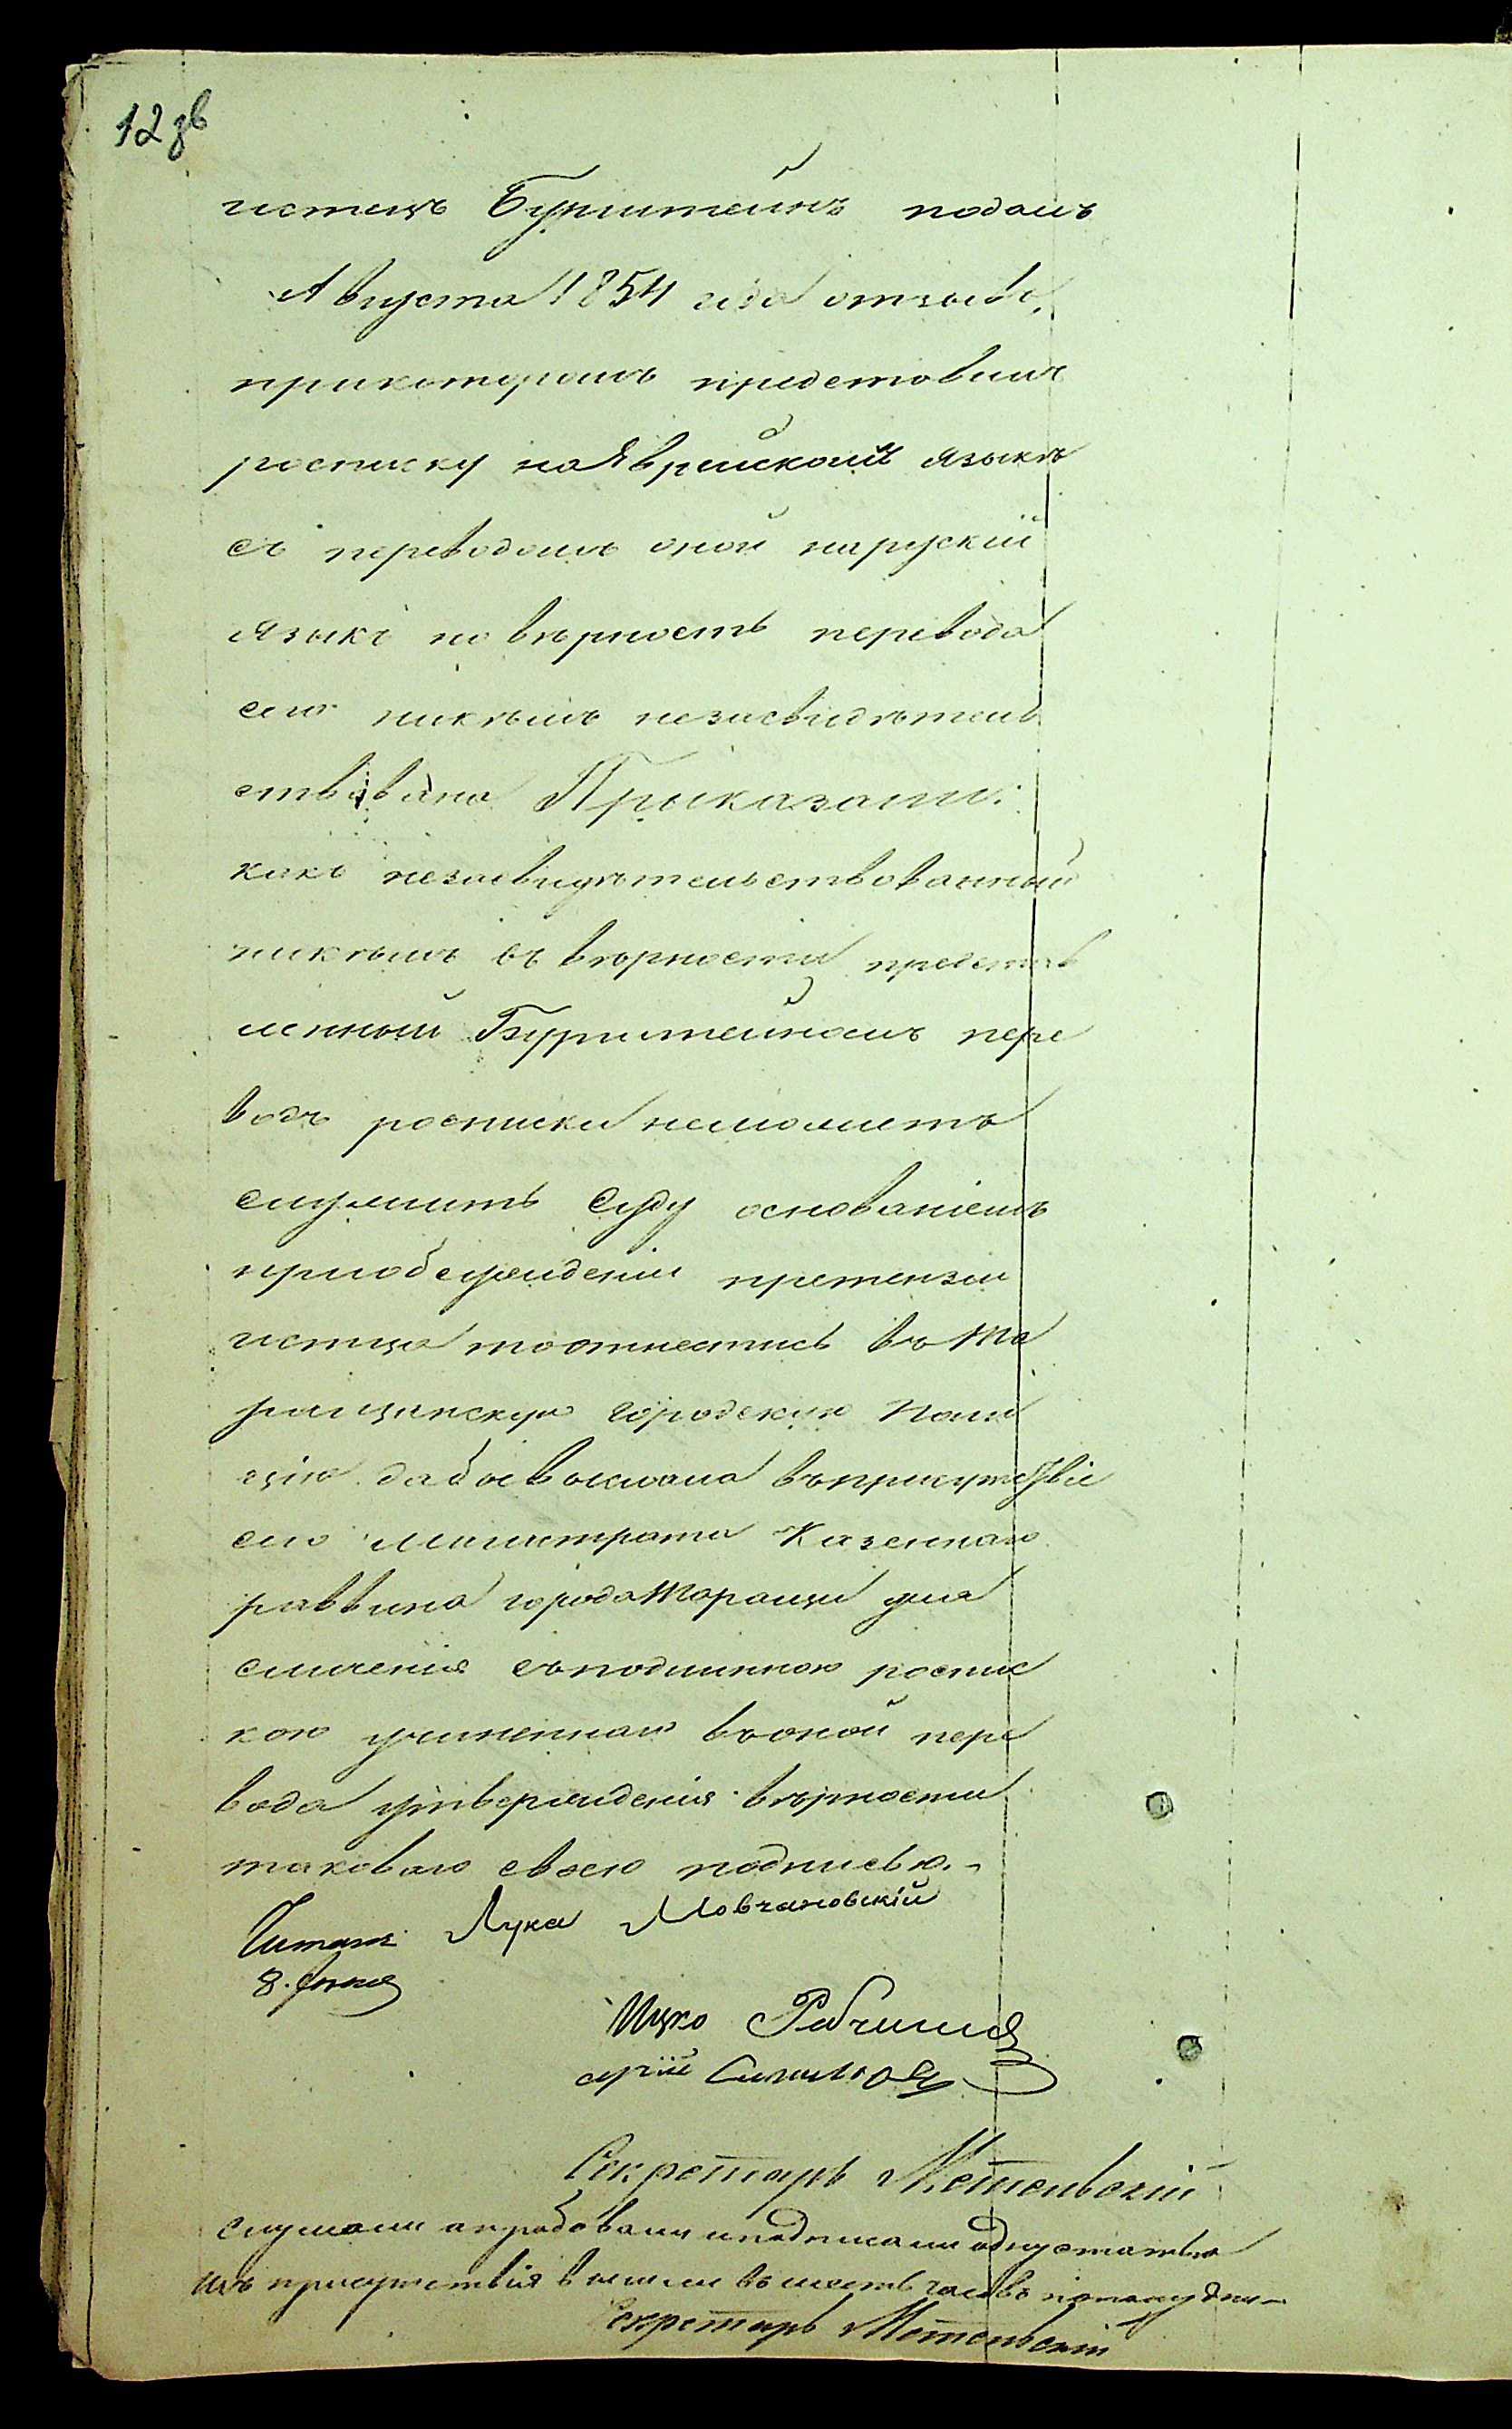 12 зв
истецъ Бурштейнъ подалъ
Августа 1854 года отзывъ,
прикоторомъ представилъ
росписку наЯврейскомъ языкѣ
съ переводомъ оной нарускій
языкъ но вѣрность перевода
сего никѣмъ незасвидѣтель
ствована Приказали:
какъ незасвидѣтельствованный
никѣмъ въ вѣрности представ
ленный Бурштейномъ пере
водъ росписки неможетъ
служить Суду основаніемъ
приобсужденіи претензіи
истца тоотнестись въ Та
ращанскую городскую Поли
цію дабы выслала въприсутствіе
сего Магистрата Казеннаго
раввина города Таращи для
сличенія съподлинною роспис
кою учиненнаго въоной пере
вода утвержденія вѣрности
таковаго своею подписью.-
Читалъ Лука Мовчановскій
8.
Ицко Рабчинс
Секретарь Метельскій
Слушали апробовали иподписали одну статью
изъ присутствія вышли въ шесть часовъ пополудни-
Секретарь Метельскій